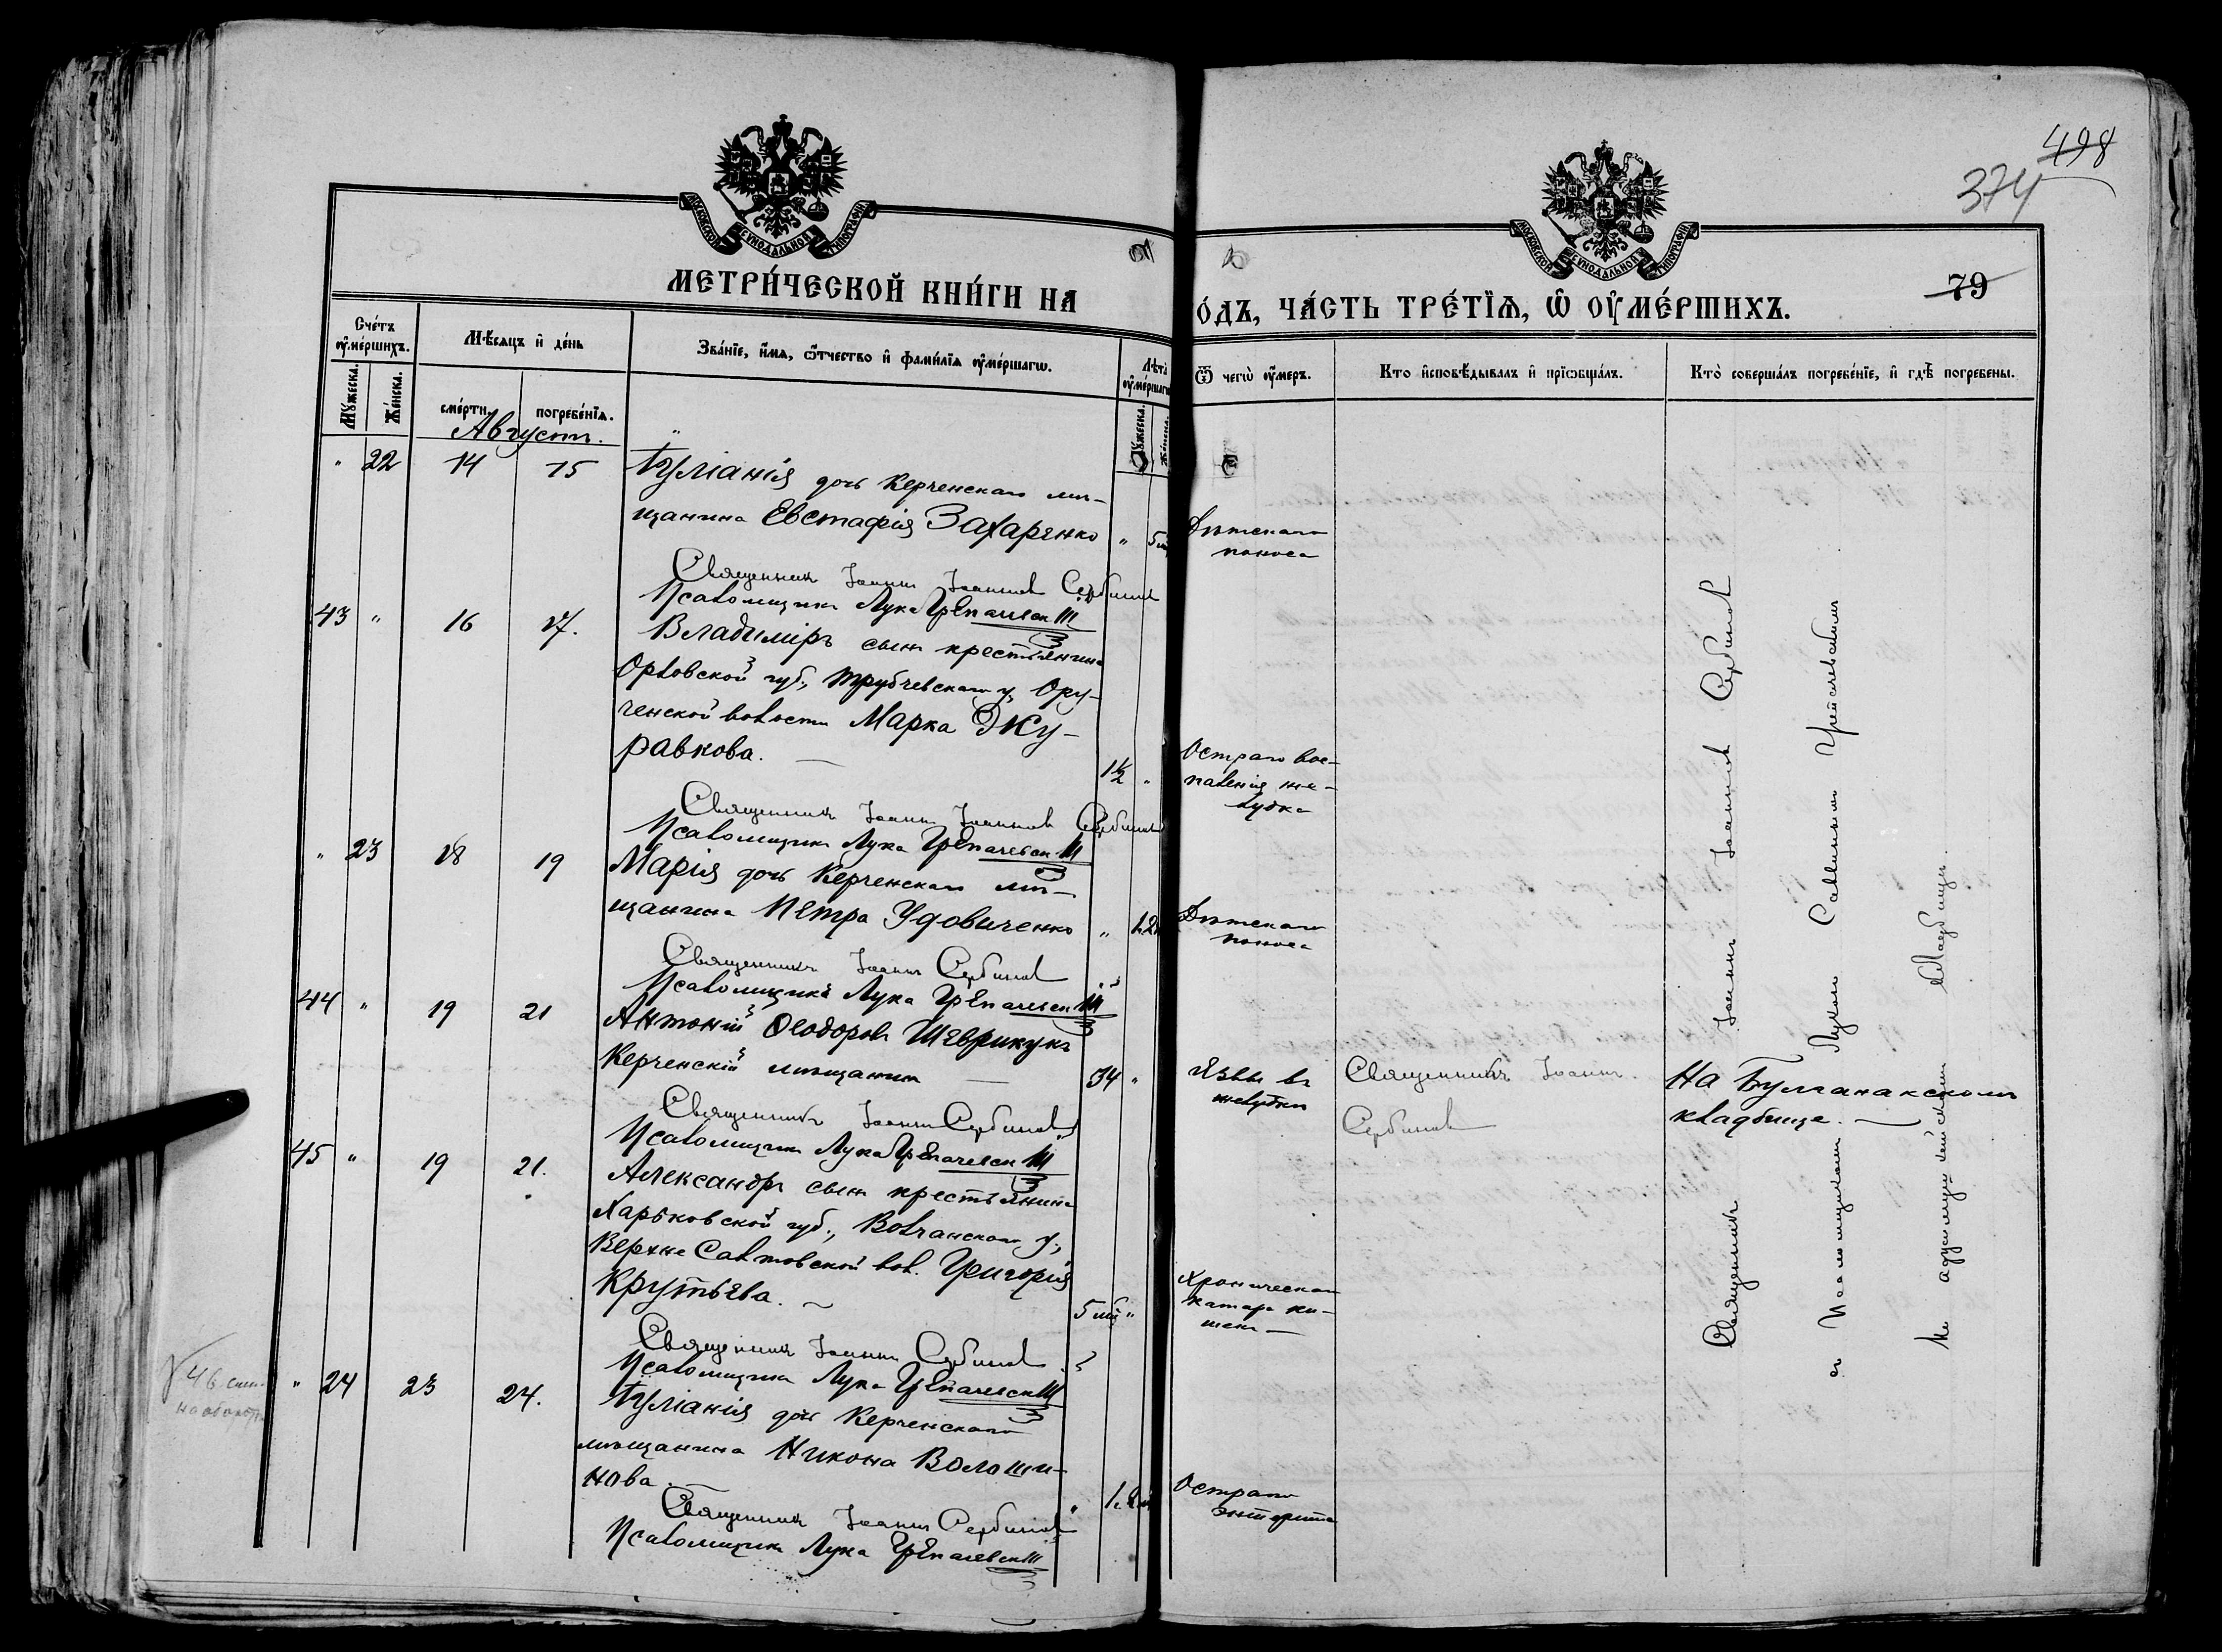 498
374
79
МОСКОВСКОЙ СѴНОДАЛЬНОЙ ТИПОГРАФІИ
МОСКОВСКОЙ СѴНОДАЛЬНОЙ ТИПОГРАФІИ
МЕТРИ́ЧЕСКОЙ КНИ́ГИ НА
О́ДЪ, ЧА́СТЬ ТРЕ́ТІѦ, Ѡ ОУ҆МЕ́РШИХЪ.
Сче́тъ оу҆ме́ршихъ.
Мꙋ́жеска.
Же́нска.
Мѣ́сѧцъ и҆ де́нь
сме́рти.
погребе́нїѧ.
Зва́нїе, и҆́мѧ, ѻ҆́тчество и҆ фами́лїѧ оу҆ме́ршагѡ.
Лѣ́та оу҆ме́ршагѡ
Мꙋ́жеска.
Же́нска.
Ѿ чегѡ̀ оу҆́меръ.
Кто̀ и҆сповѣ́дывалъ и҆ прїѡбща́лъ.
Кто̀ соверша́лъ погребе́нїе, и҆ гдѣ̀ погребены.
Августъ.
" 22 14 15 Іуліанія дочь Керченскаго мѣ-
щанина Евстафія Захаренко " 5 Дѣтскаго
поноса
Священникъ Іоаннъ Іоанновъ Сербиновъ
Псаломщикъ Лука Грепачевскій
43 " 16 17. Владиміръ сынъ крестьянина
Орловской губ., Трубчевскаго у., Ору-
ченской волости Марка Жу-
равкова. 1½ " Остраго вос-
паленія же-
лудка
Священникъ Іоаннъ Іоанновъ Сербиновъ
Псаломщикъ Лука Грепачевскій
" 23 18 19 Марія дочь Керченскаго мѣ-
щанина Петра Удовиченко " Дѣтскаго
поноса
Священникъ Іоаннъ Сербиновъ
Псаломщикъ Лука Грепачевскій
44 " 19 21 Антоній Ѳеодоровъ Шеврикукъ
Керченскій мѣщанинъ 34 " Язвы въ
желудкѣ
Священникъ Іоаннъ
Сербиновъ
На Булганакскомъ
кладбище.
Священникъ Іоаннъ Сербиновъ
Псаломщикъ Лука Грепачевскій
45 " 19 21. Александръ сынъ крестьянина
Харьковской губ., Волчанскаго у.,
Верхне Салтовской вол. Григорія
Крутьева. 5 мѣ " Хроническаго
катара ки-
шекъ
Священникъ Іоаннъ Сербиновъ
Псаломщикъ Лука Грепачевскій
46 см.
на оборотѣ
" 24 23 24. Іуліанія дочь Керченскаго
мѣщанина Никона Волоши-
нова. " Остраго
энтерита
Священникъ Іоаннъ Сербиновъ
Псаломщикъ Лука Грепачевскій
Священникъ Іоаннъ Іоанновъ Сербиновъ
съ Псаломщикомъ Лукою Саввинымъ Грепачевскимъ
На Аджимушкайскомъ кладбищѣ.